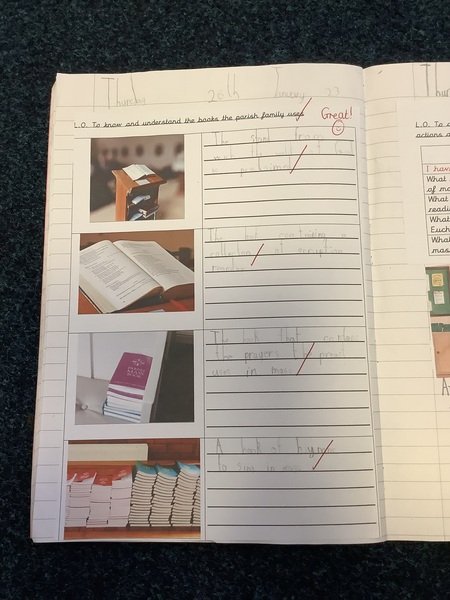 Thursday 26th January 23
L.O. To know and understand the books the parish family uses
Great!
The stand from
were the word of God
is proclaimed
The book containing a
collection of scripture
readings
The book that contains
the prayers the priest
uses in mass
A book of hymns
to sing in mass
Thur
L.O. To
actions a
I hav
What
of ma
What
readi
What
Euch
What
mas
A